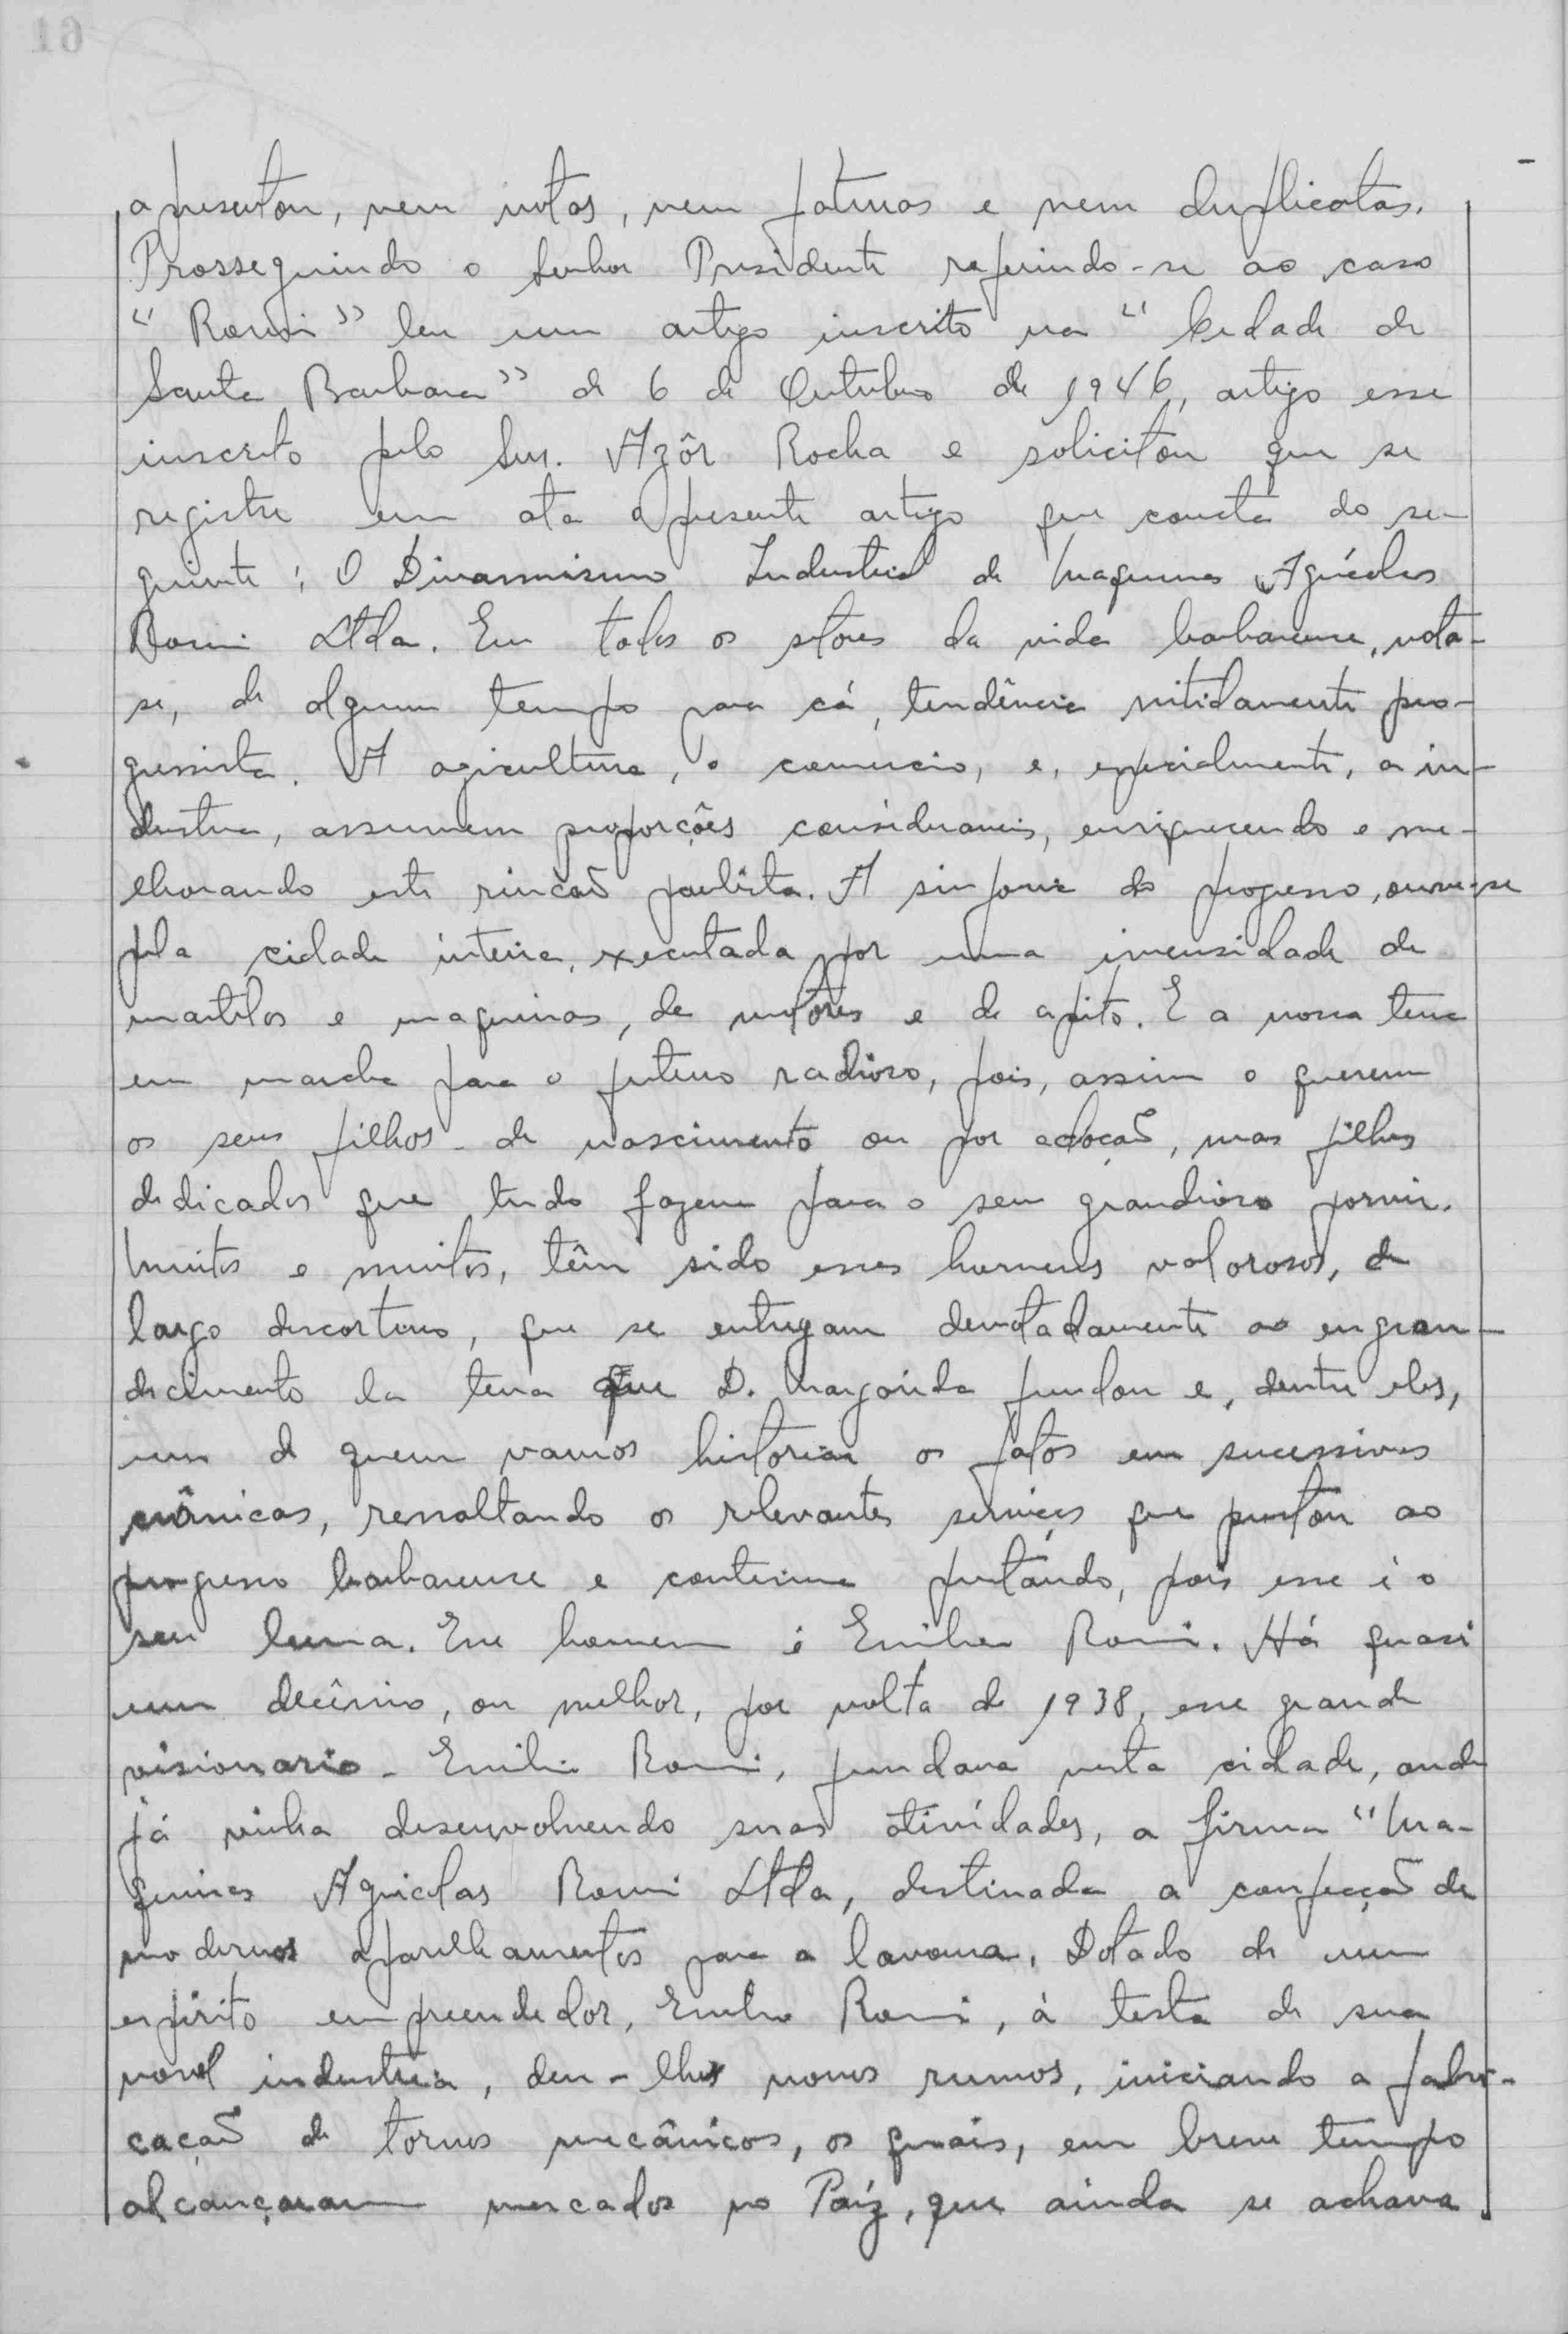 apresentou, nem notas, nem faturas e nem duplicatas.
Prosseguindo o Senhor Presidente referindo-se ao caso
"Romi" leu um artigo inscrito na "Cidade de
Santa Barbara" de 6 de Outubro de 1946, artigo esse
inscrito pelo Snr. Azôr Rocha e solicitou que se
registre em ata o presente artigo que consta do se-
guinte: O Dinamismo Industrial de Maquinas Agrícolas
Romi Ltda. Em todos os setores da vida barbarense, nota-
se, de algum tempo para cá, tendência nitidamente pro-
gressista. A agricultura, o comercio, e, especialmente, a in-
dustria, assumem proporções consideraveis, enriquecendo e me-
lhorando este rincão paulista. A sinfonia do progresso, ouve-se
pela cidade inteira, executada por uma imensidade de
martelos e maquinas, de motores e de apito. E a nossa terra
em marcha para o futuro radioso, pois, assim o querem
os seus filhos - de nascimento ou por adoção, mas filhos
dedicados que tudo fazem para o seu grandioso porvir.
Muitos e muitos, têm sido esses homens valorosos, de
largo descortino, que se entregam denotadamente ao engran-
decimento da terra que D. Margarida fundou e, dentre eles,
um de quem vamos historiar os fatos em sucessivas
crônicas, ressaltando os relevantes serviços que prestou ao
progresso barbarense e continua prestando, pois esse é o
seu lema. Esse homem é Emilio Romi. Há quasi
um decênio, ou melhor, por volta de 1938, esse grande
visionario - Emilio Romi, fundava nesta cidade, onde
já vinha desenvolvendo suas atividades, a firma "Ma-
quinas Agricolas Romi Ltda, destinada a confecção de
modernos aparelhamentos para a lavoura. Dotado de um
espirito empreendedor, Emilio Romi, à testa de sua
novel industria, deu-lhe novos rumos, iniciando a fabri-
cação de tornos mecânicos, os quais, em breve tempo
alcançaram mercados no Paíz, que ainda se achava